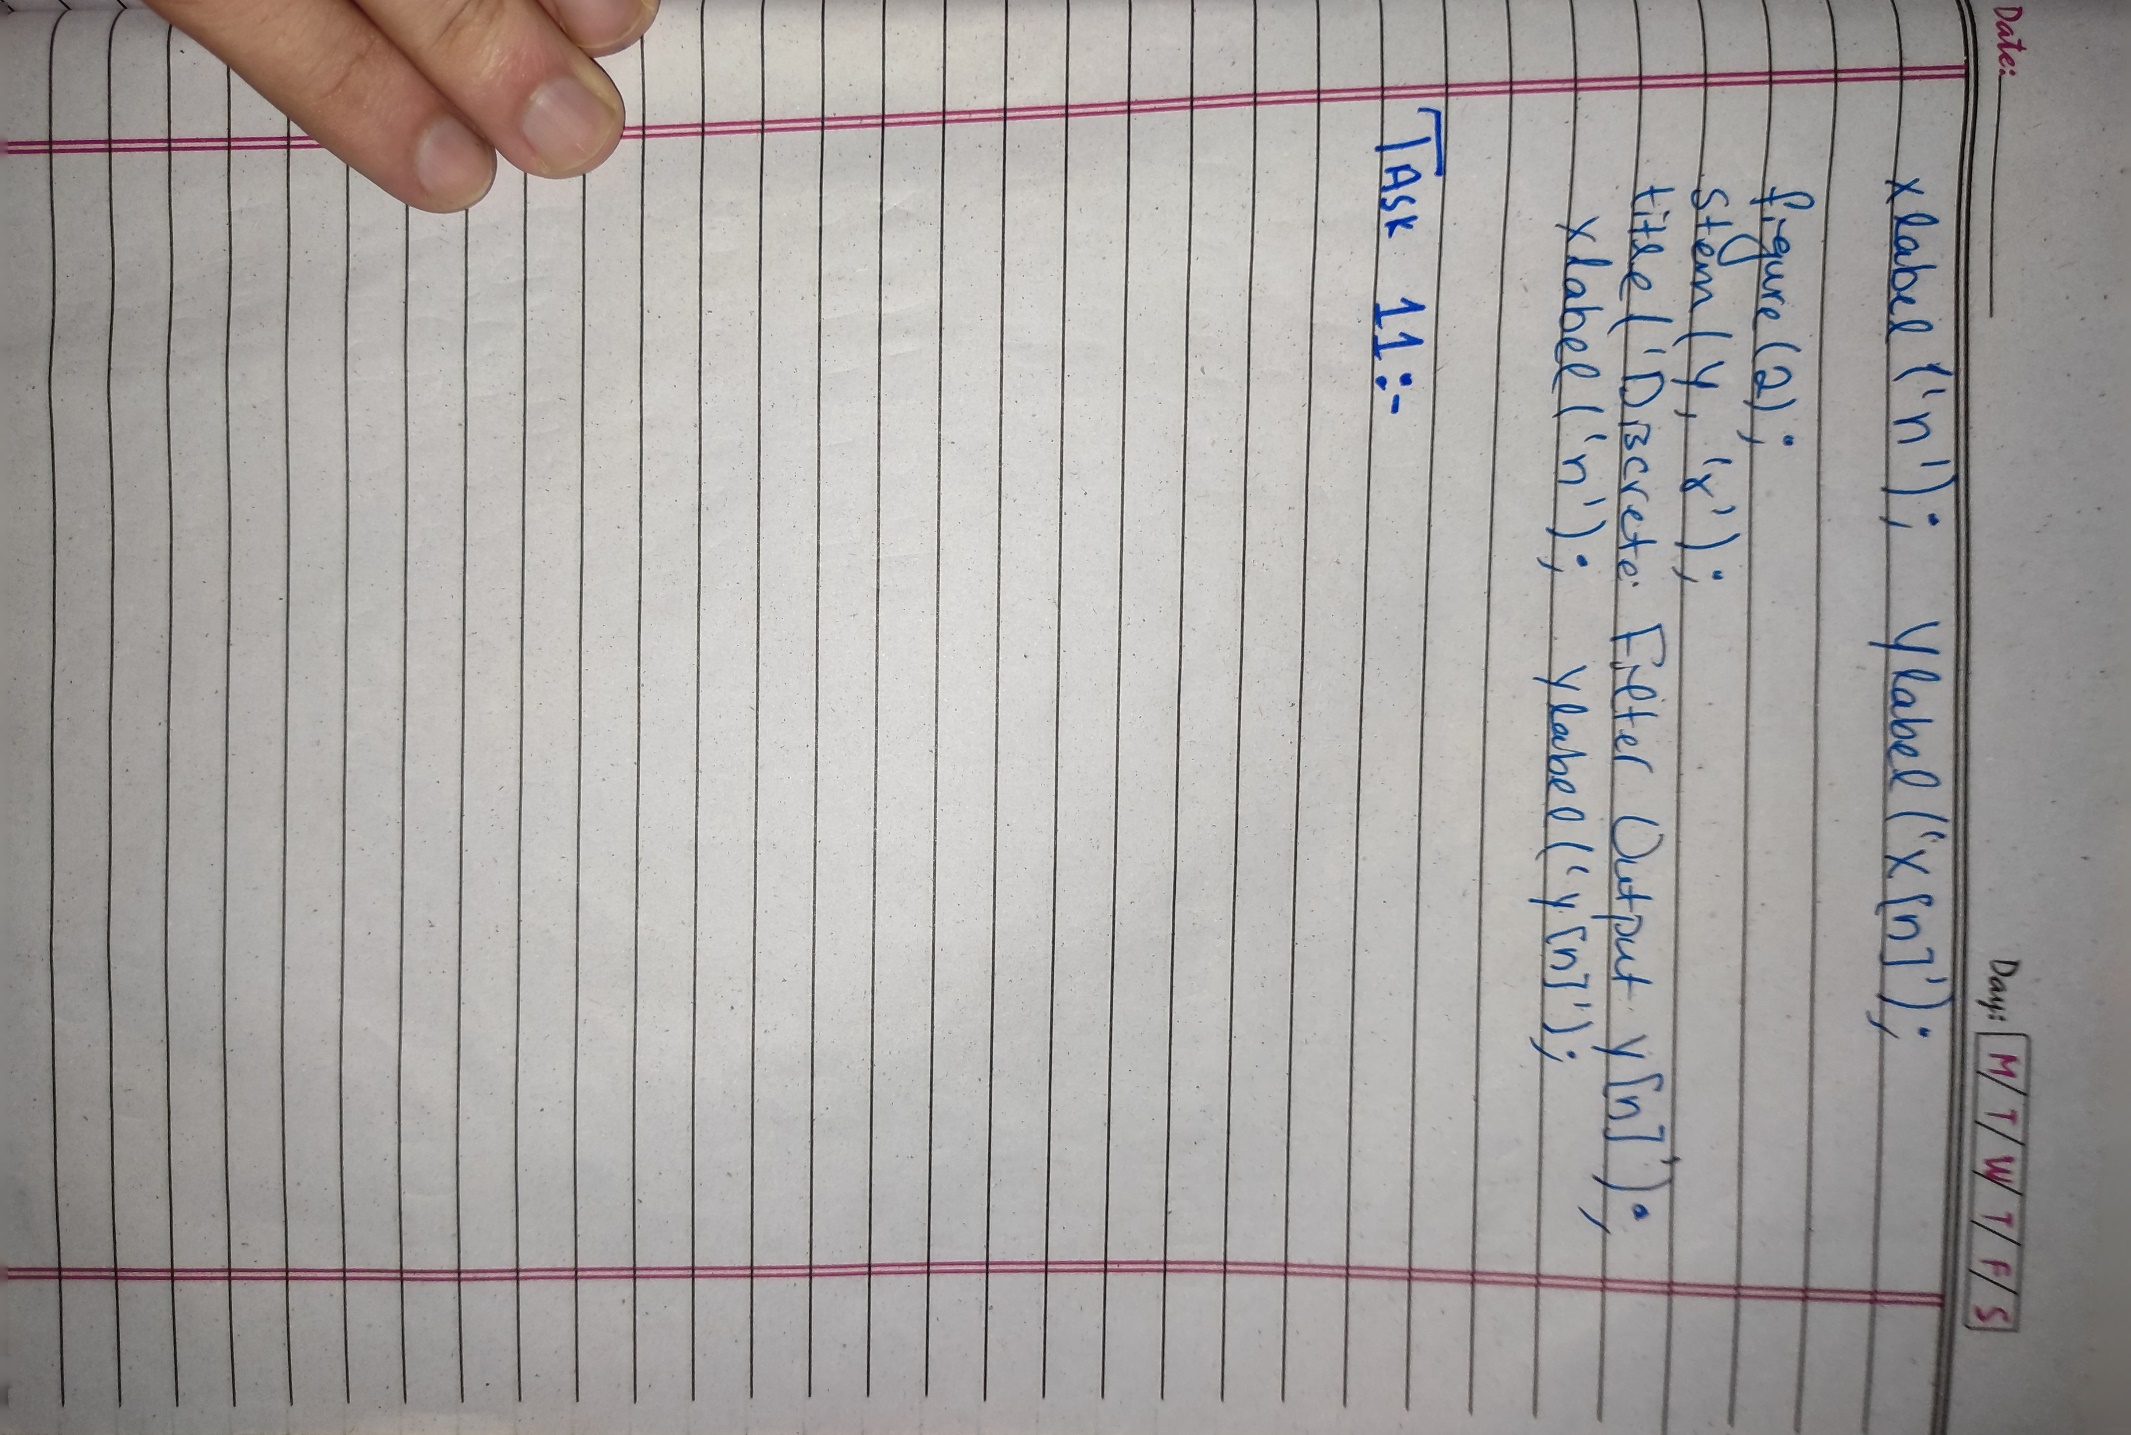 Date:
Day: M/T/W/T/F/S
xlabel('n'); ylabel('x[n]');
figure(2);
stem(y, 'r');
title('Discrete Filter Output y[n]');
xlabel('n'); ylabel('y[n]');
TASK 11:-